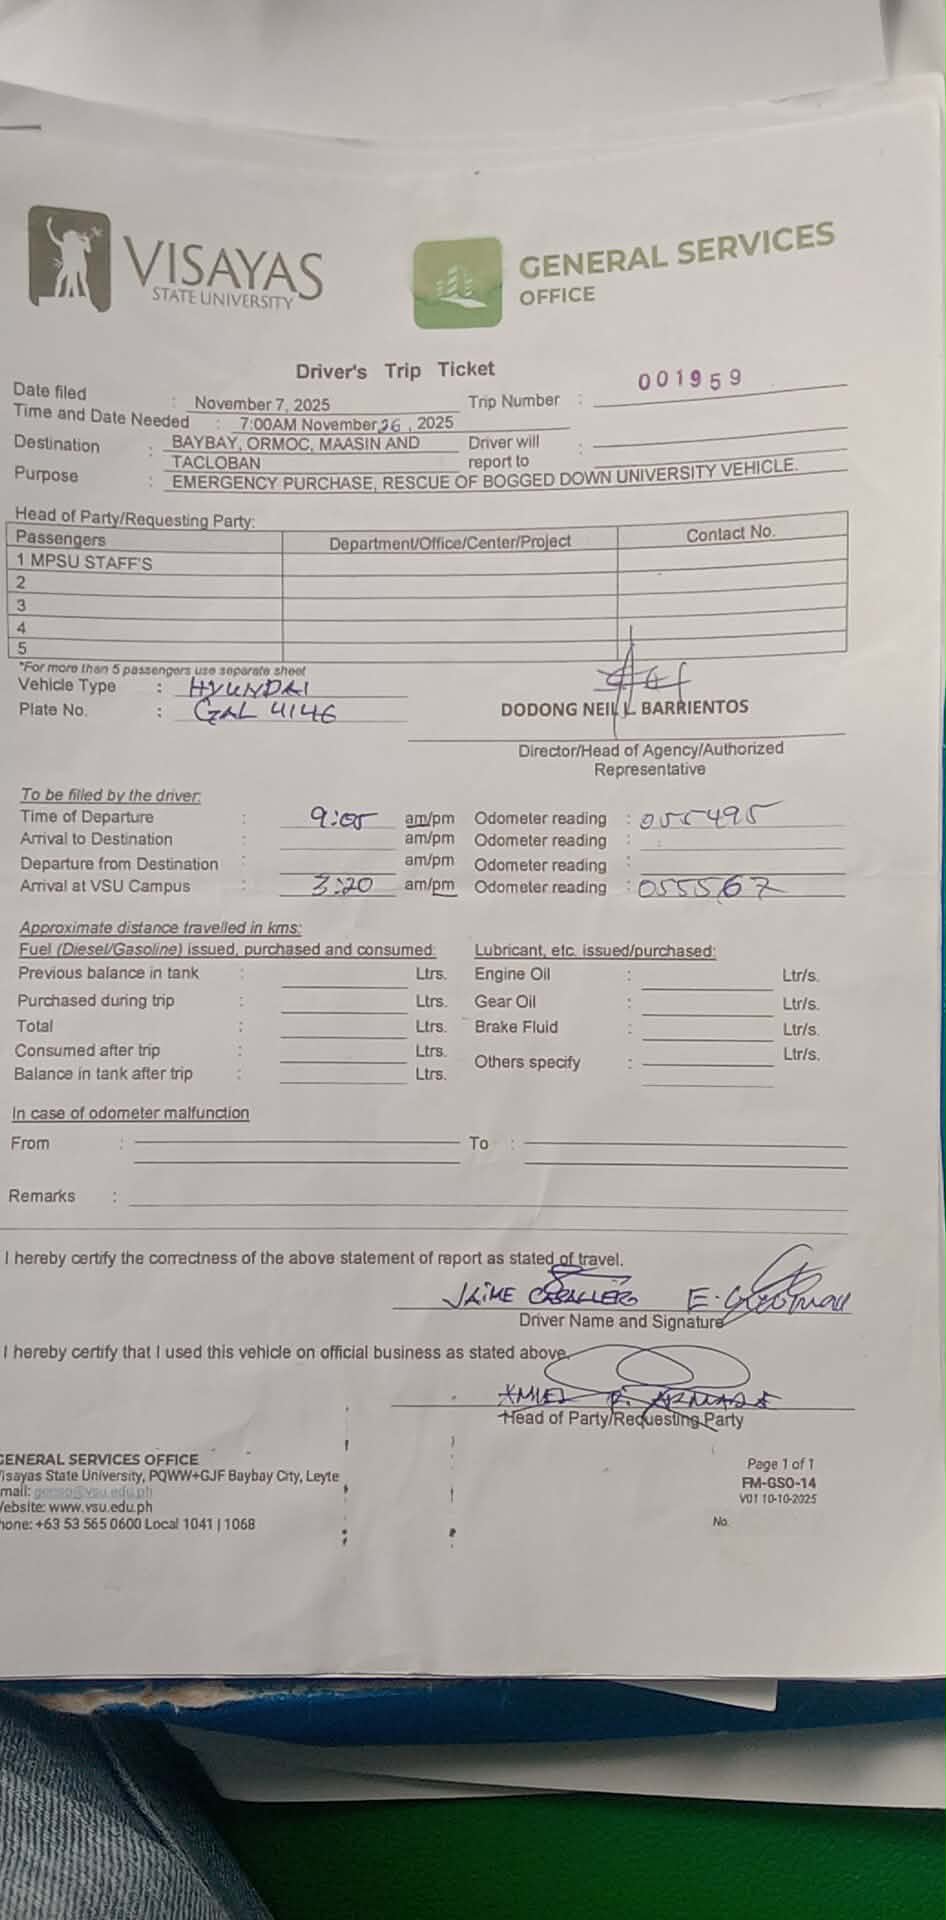 VISAYAS
STATE UNIVERSITY
GENERAL SERVICES
OFFICE
Driver's Trip Ticket
Date filed : November 7, 2025 Trip Number : 001959
Time and Date Needed : 7:00AM November 26, 2025
Destination : BAYBAY, ORMOC, MAASIN AND Driver will :
TACLOBAN report to
Purpose : EMERGENCY PURCHASE, RESCUE OF BOGGED DOWN UNIVERSITY VEHICLE.
Head of Party/Requesting Party:
Passengers Department/Office/Center/Project Contact No.
1 MPSU STAFF'S
2
3
4
5
*For more than 5 passengers use separate sheet
Vehicle Type : HYUNDAI
Plate No. : GAL 4146
DODONG NEIL L. BARRIENTOS
Director/Head of Agency/Authorized
Representative
To be filled by the driver:
Time of Departure : 9:05 am/pm Odometer reading : 055495
Arrival to Destination : am/pm Odometer reading :
Departure from Destination : am/pm Odometer reading :
Arrival at VSU Campus : 3:20 am/pm Odometer reading : 055567
Approximate distance travelled in kms:
Fuel (Diesel/Gasoline) issued, purchased and consumed: Lubricant, etc. issued/purchased:
Previous balance in tank : Ltrs. Engine Oil : Ltr/s.
Purchased during trip : Ltrs. Gear Oil : Ltr/s.
Total : Ltrs. Brake Fluid : Ltr/s.
Consumed after trip : Ltrs. Others specify : Ltr/s.
Balance in tank after trip : Ltrs.
In case of odometer malfunction
From : To :
Remarks :
I hereby certify the correctness of the above statement of report as stated of travel.
JAIME CABALLERO E.
Driver Name and Signature
I hereby certify that I used this vehicle on official business as stated above.
Head of Party/Requesting Party
GENERAL SERVICES OFFICE
Visayas State University, PQWW+GJF Baybay City, Leyte
mail: genso@vsu.edu.ph
Website: www.vsu.edu.ph
hone: +63 53 565 0600 Local 1041 | 1068
Page 1 of 1
FM-GSO-14
V01 10-10-2025
No.